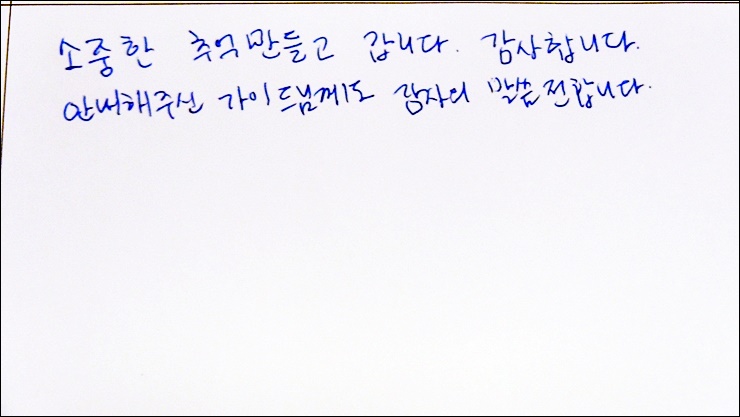 소중한 추억만들고 갑니다. 감사합니다.
안내해주신 가이드님께도 감사의 말씀 전합니다.